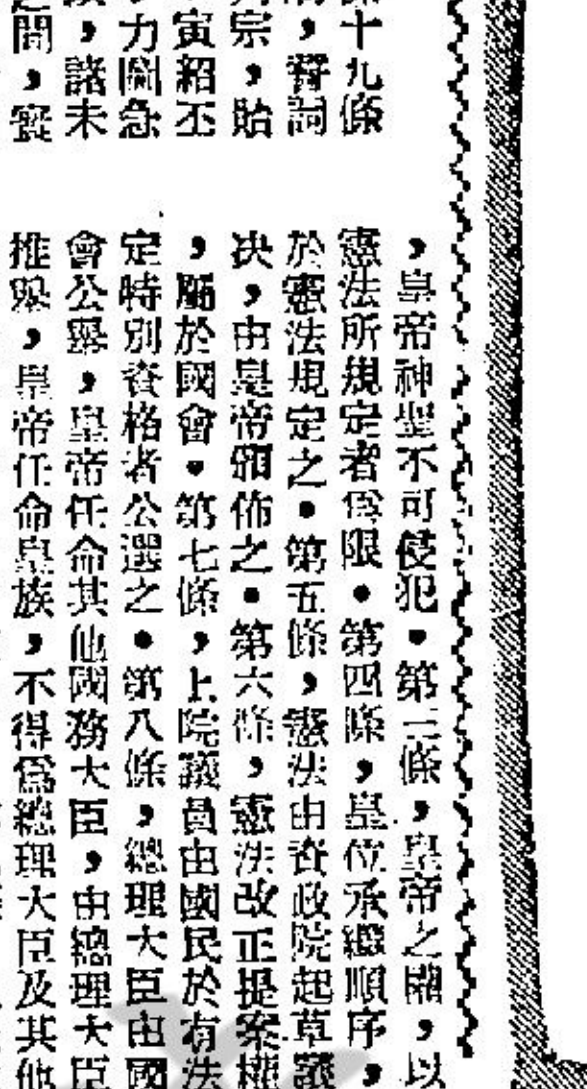 十九條
，誓詞
宗，貽
寅紹丕
力圖急
，諸未
間，實
，皇帝神聖不可侵犯●第三條，皇帝之權，以
憲法所規定者爲限●第四條，皇位承繼順序，
於憲法規定之●第五條，憲法由資政院起草議
决，由皇帝頒佈之●第六條，憲法改正提案權
，屬於國會●第七條，上院議員由國民於有法
定特別資格者公選之●第八條，總理大臣由國
會公舉，皇帝任命其他國務大臣，由總理大臣
推舉，皇帝任命皇族，不得爲總理大臣及其他